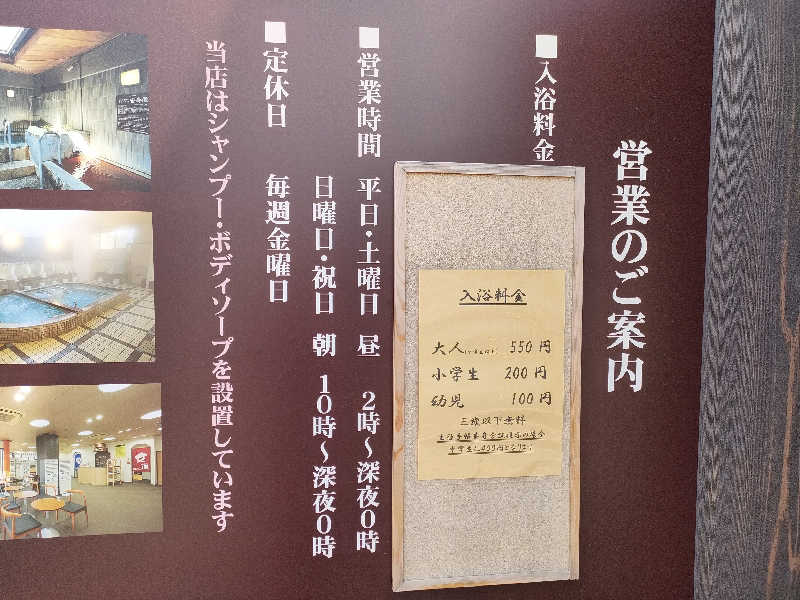 営業のご案内
■入浴料金
入浴料金
大人 550円
小学生 200円
幼児 100円
三歳以下無料
■営業時間 平日・土曜日 昼 2時〜深夜0時
日曜日・祝日 朝 10時〜深夜0時
■定休日 毎週金曜日
当店はシャンプー・ボディソープを設置しています